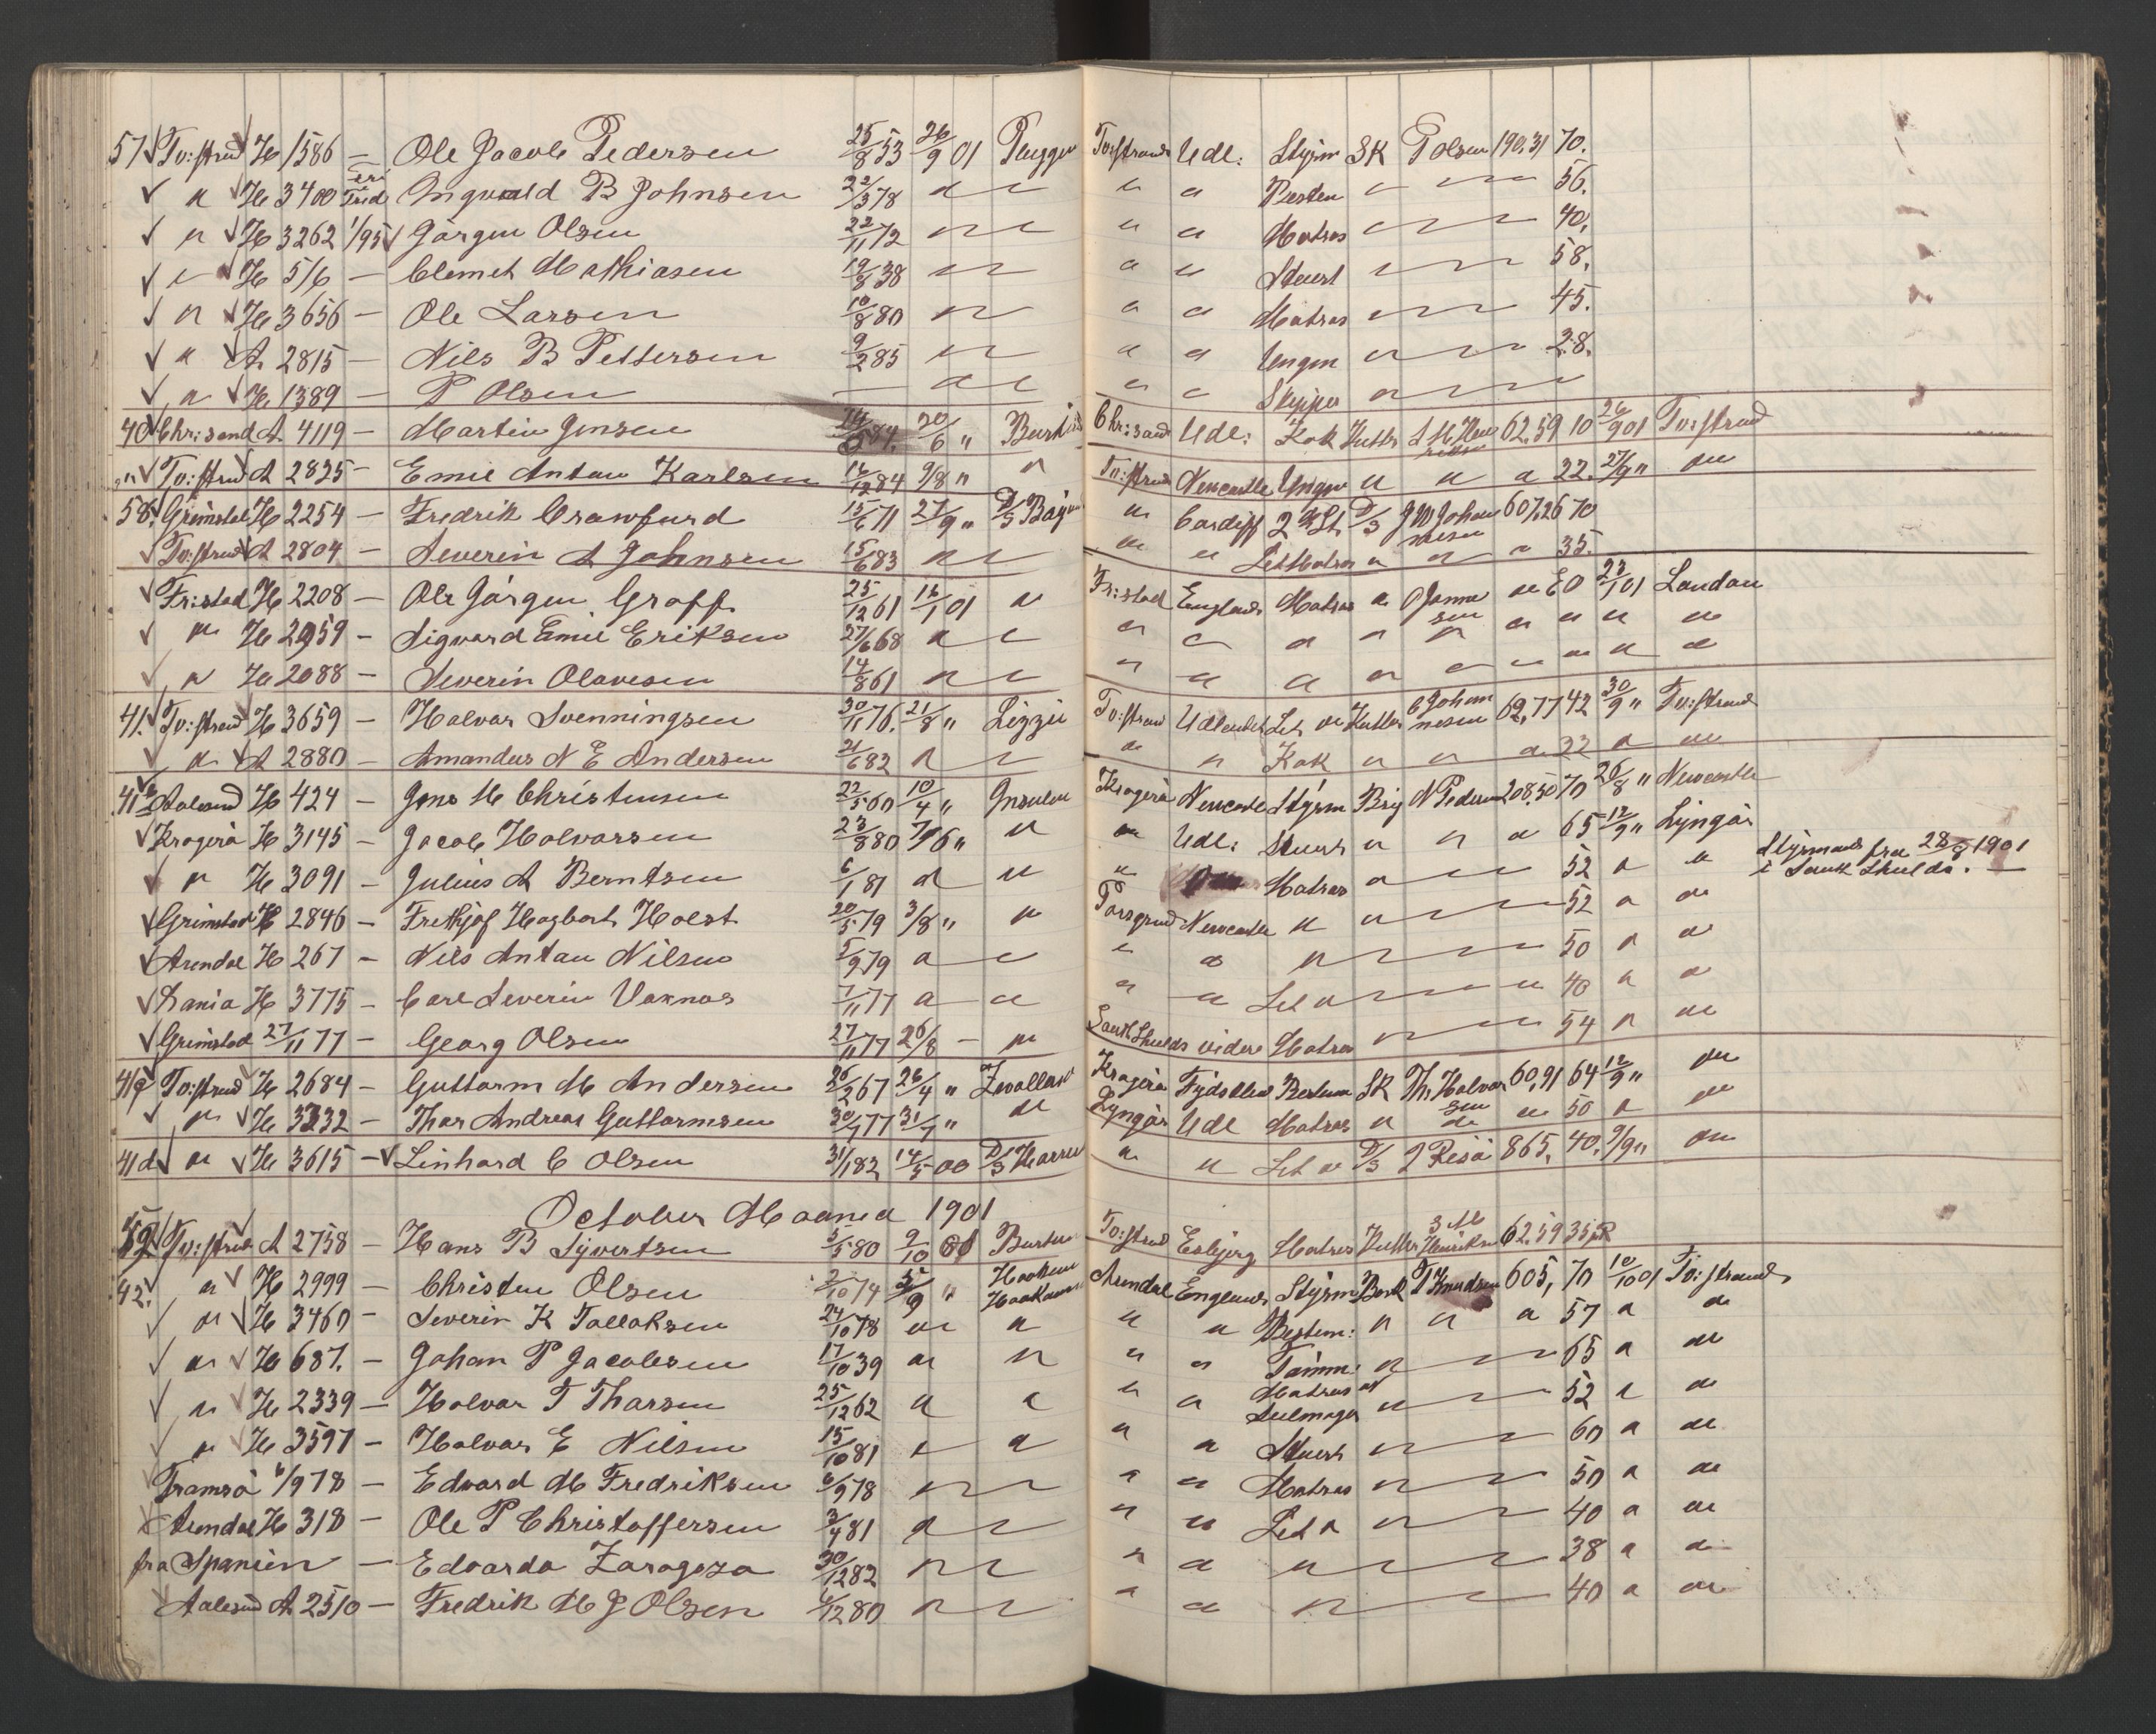 57 Tv:strand H 1586 — Ole Jacob Pedersen 25/8 53 26/9 01 Tv:strand Udl: Styrm SK P Olsen 190,31 70.
" H 3400 Ingvald B Johnsen 22/3 78 " " " " " 56.
" H 3262 1/95 Jørgen Olsen 22/11 72 " " " " Matros " 40,
" H 516 — Clemet Mathiasen 19/8 38 " " " " Stuert " 58,
" H 3656 — Ole Larsen 10/8 80 " " " " Matros " 45.
" A 2815 — Nils B Pettersen 9/2 85 " " " " Ungm " 28.
" H 1389 — P Olsen — " " " " Skipper "
40 Chr:sand A 4119 — Martin Jensen 84. 20/6 " Chr:sand Udl: Kok Kutter 62,59 10 26/9 01 Tv:strand
" Tv:strand A 2835 — Emil Anton Karlsen 16/12 84 9/8 " " Tv:strand Newcastle Ungm " " " 22. 27/9 " "
58. Grimstad H 2254 — Fredrik Crawfurd 15/6 71 27/9 " D/S " Cardiff 2 St D/S J M Johannesen 607,26 70
Tv:strand A 2804 — Severin A Johnsen 15/6 83 " " " " Let Matros " " " 35.
Fr:stad H 2208 — Ole Jørgen Groff 25/12 61 16/1 01 " Fr:stad England Matros " " 60 23/1 01 London
" H 2959 — Sigvard Emil Eriksen 27/6 68 " " " " " " " " " " "
" H 2088 — Severin Olavesen 14/8 61 " " " " " " " " " " "
41. Tv:strand H 3659 — Halvor Svenningsen 30/11 76. 21/8 " Lizzie Tv:strand Udlandet Let " Kutter C Johannesen 62,77 42 30/9 " Tv:strand
" A 2880 — Amandus N E Andersen 21/6 82 " " " " Kok " " " 22 " "
41 b Aalesund H 424 — Jens M Christensen 22/5 60 10/4 " Kragerø Newcastle Styrm Brig N Pedersen 208,50 70 26/8 " Newcastle
Kragerø H 3145 — Jacob Halvorsen 23/8 80 7/6 " " " Udl: Stuert " " " 65 12/9 " Lyngør
" H 3091 — Julius A Berntsen 6/1 81 " " " Matros " 52 " " Styrmand fra 28/8 1901
i South Shields. —
Grimstad H 2846 — Frethjof Hagbart Holst 20/5 79 3/8 " " Porsgrund Newcastle " " 52 " "
Arendal H 267 — Nils Anton Nilsen 5/9 79 " " " " " 50 " "
H 3775 — Carl Severin Vaknas 7/11 77 " " " " Let " " 40 " "
Grimstad 27/11 77 — Georg Olsen 27/11 77 26/8 — " South Shields videre Matros " 54 " "
Tv:strand H 2684 — Guttorm M Andersen 26/2 67 26/4 " Kragerø Bestman SK Th: Halvorsen 60,91 64 12/9 " "
" H 3232 — Thor Andreas Guttormsen 30/1 77 31/7 " " Lyngør Udl Matros " " " 50 " "
41 d " H 3615 — Linhard C Olsen 31/1 82 14/5 00 D/S " " Let " D/S 865, 40, 9/9 " "
October Maaned 1901
59 Tv:strand A 2758 — Hans B Syvertsen 5/5 80 9/10 01 Tv:strand Esbjerg Matros Kutter Henriksen 62,59 35
42. " H 2999 — Christen Olsen 2/10 74 5/9 " Haakon Arendal England Styrm Bark T Knudsen 605, 70 10/10 01 Tv:strand
" H 3460 — Severin K Tallaksen 24/10 78 " " " " Bestm: " " " 57 " "
" H 687. — Johan P Jacobsen 17/10 39 " " " " Tømm: " 65 " "
" H 2339 — Halvor T Tharsen 25/12 62 " " " " Matros og Seilmager " 52 " "
" H 3597 — Halvor E Nilsen 15/10 81 " " " " Stuert " 60 " "
Tromsø 6/9 78 — Edvard M Fredriksen 6/9 78 " " " " Matros " 50 " "
Arendal H 318 — Ole P Christoffersen 3/4 81 " " " " Let " " 40 " "
fra Spanien — Edoardo Zaragoza 30/12 82 " " " " " 38 " "
Aalesund A 2510 — Fredrik M J Olsen 6/12 80 " " " " " 40 " "